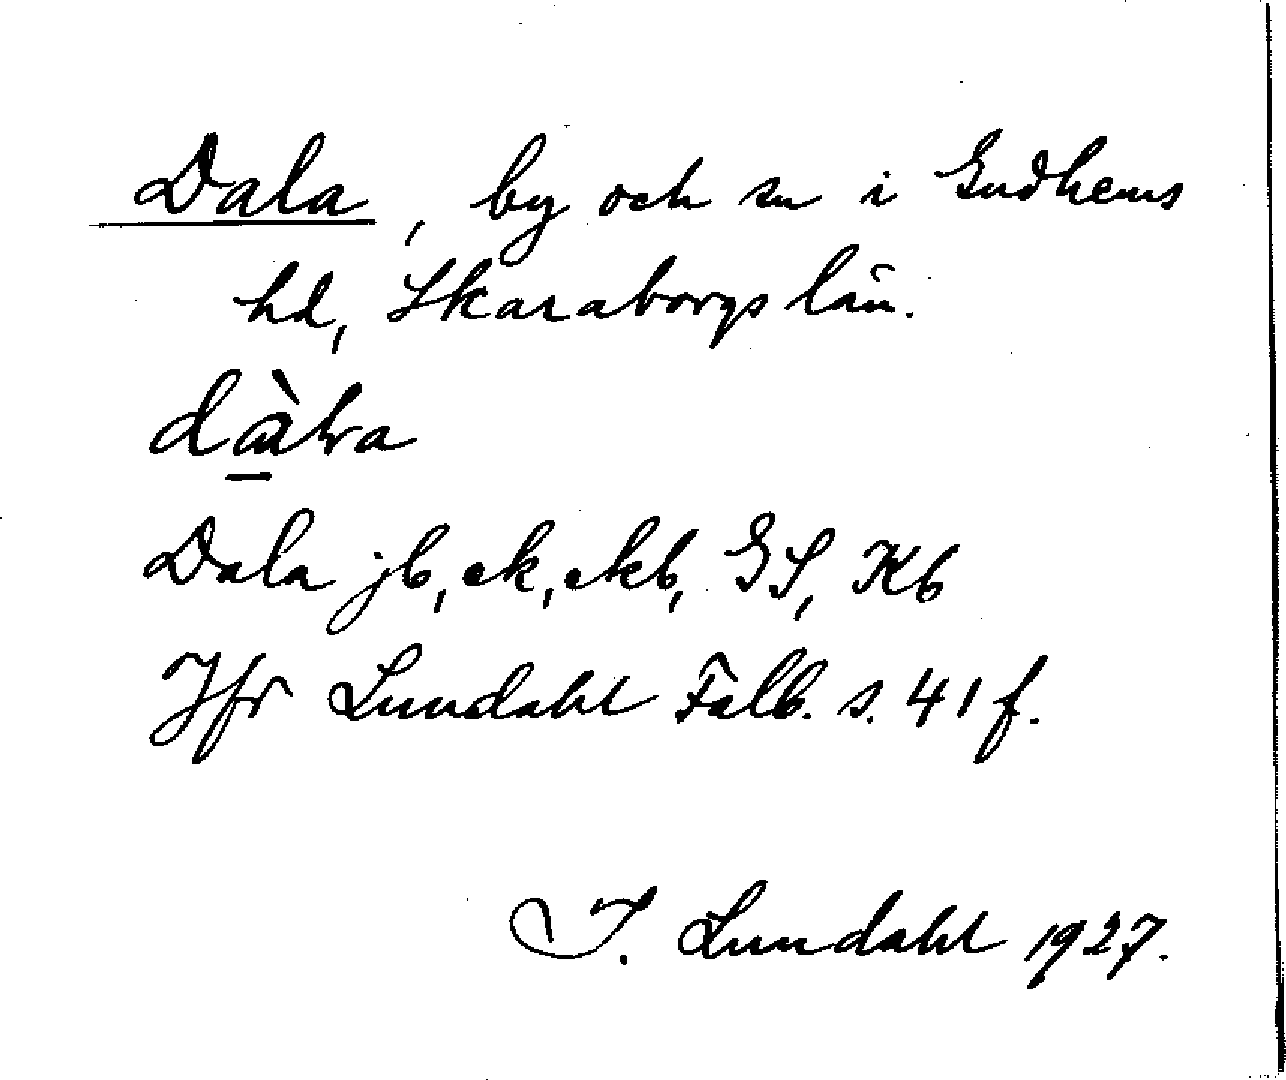 Dala, by och sn i Gudhems
hd, Skaraborgs län.
Dala jb, ek, ekb, GS, Kb
Jfr Lundahl Falb. s. 41 f.
I. Lundahl 1927.